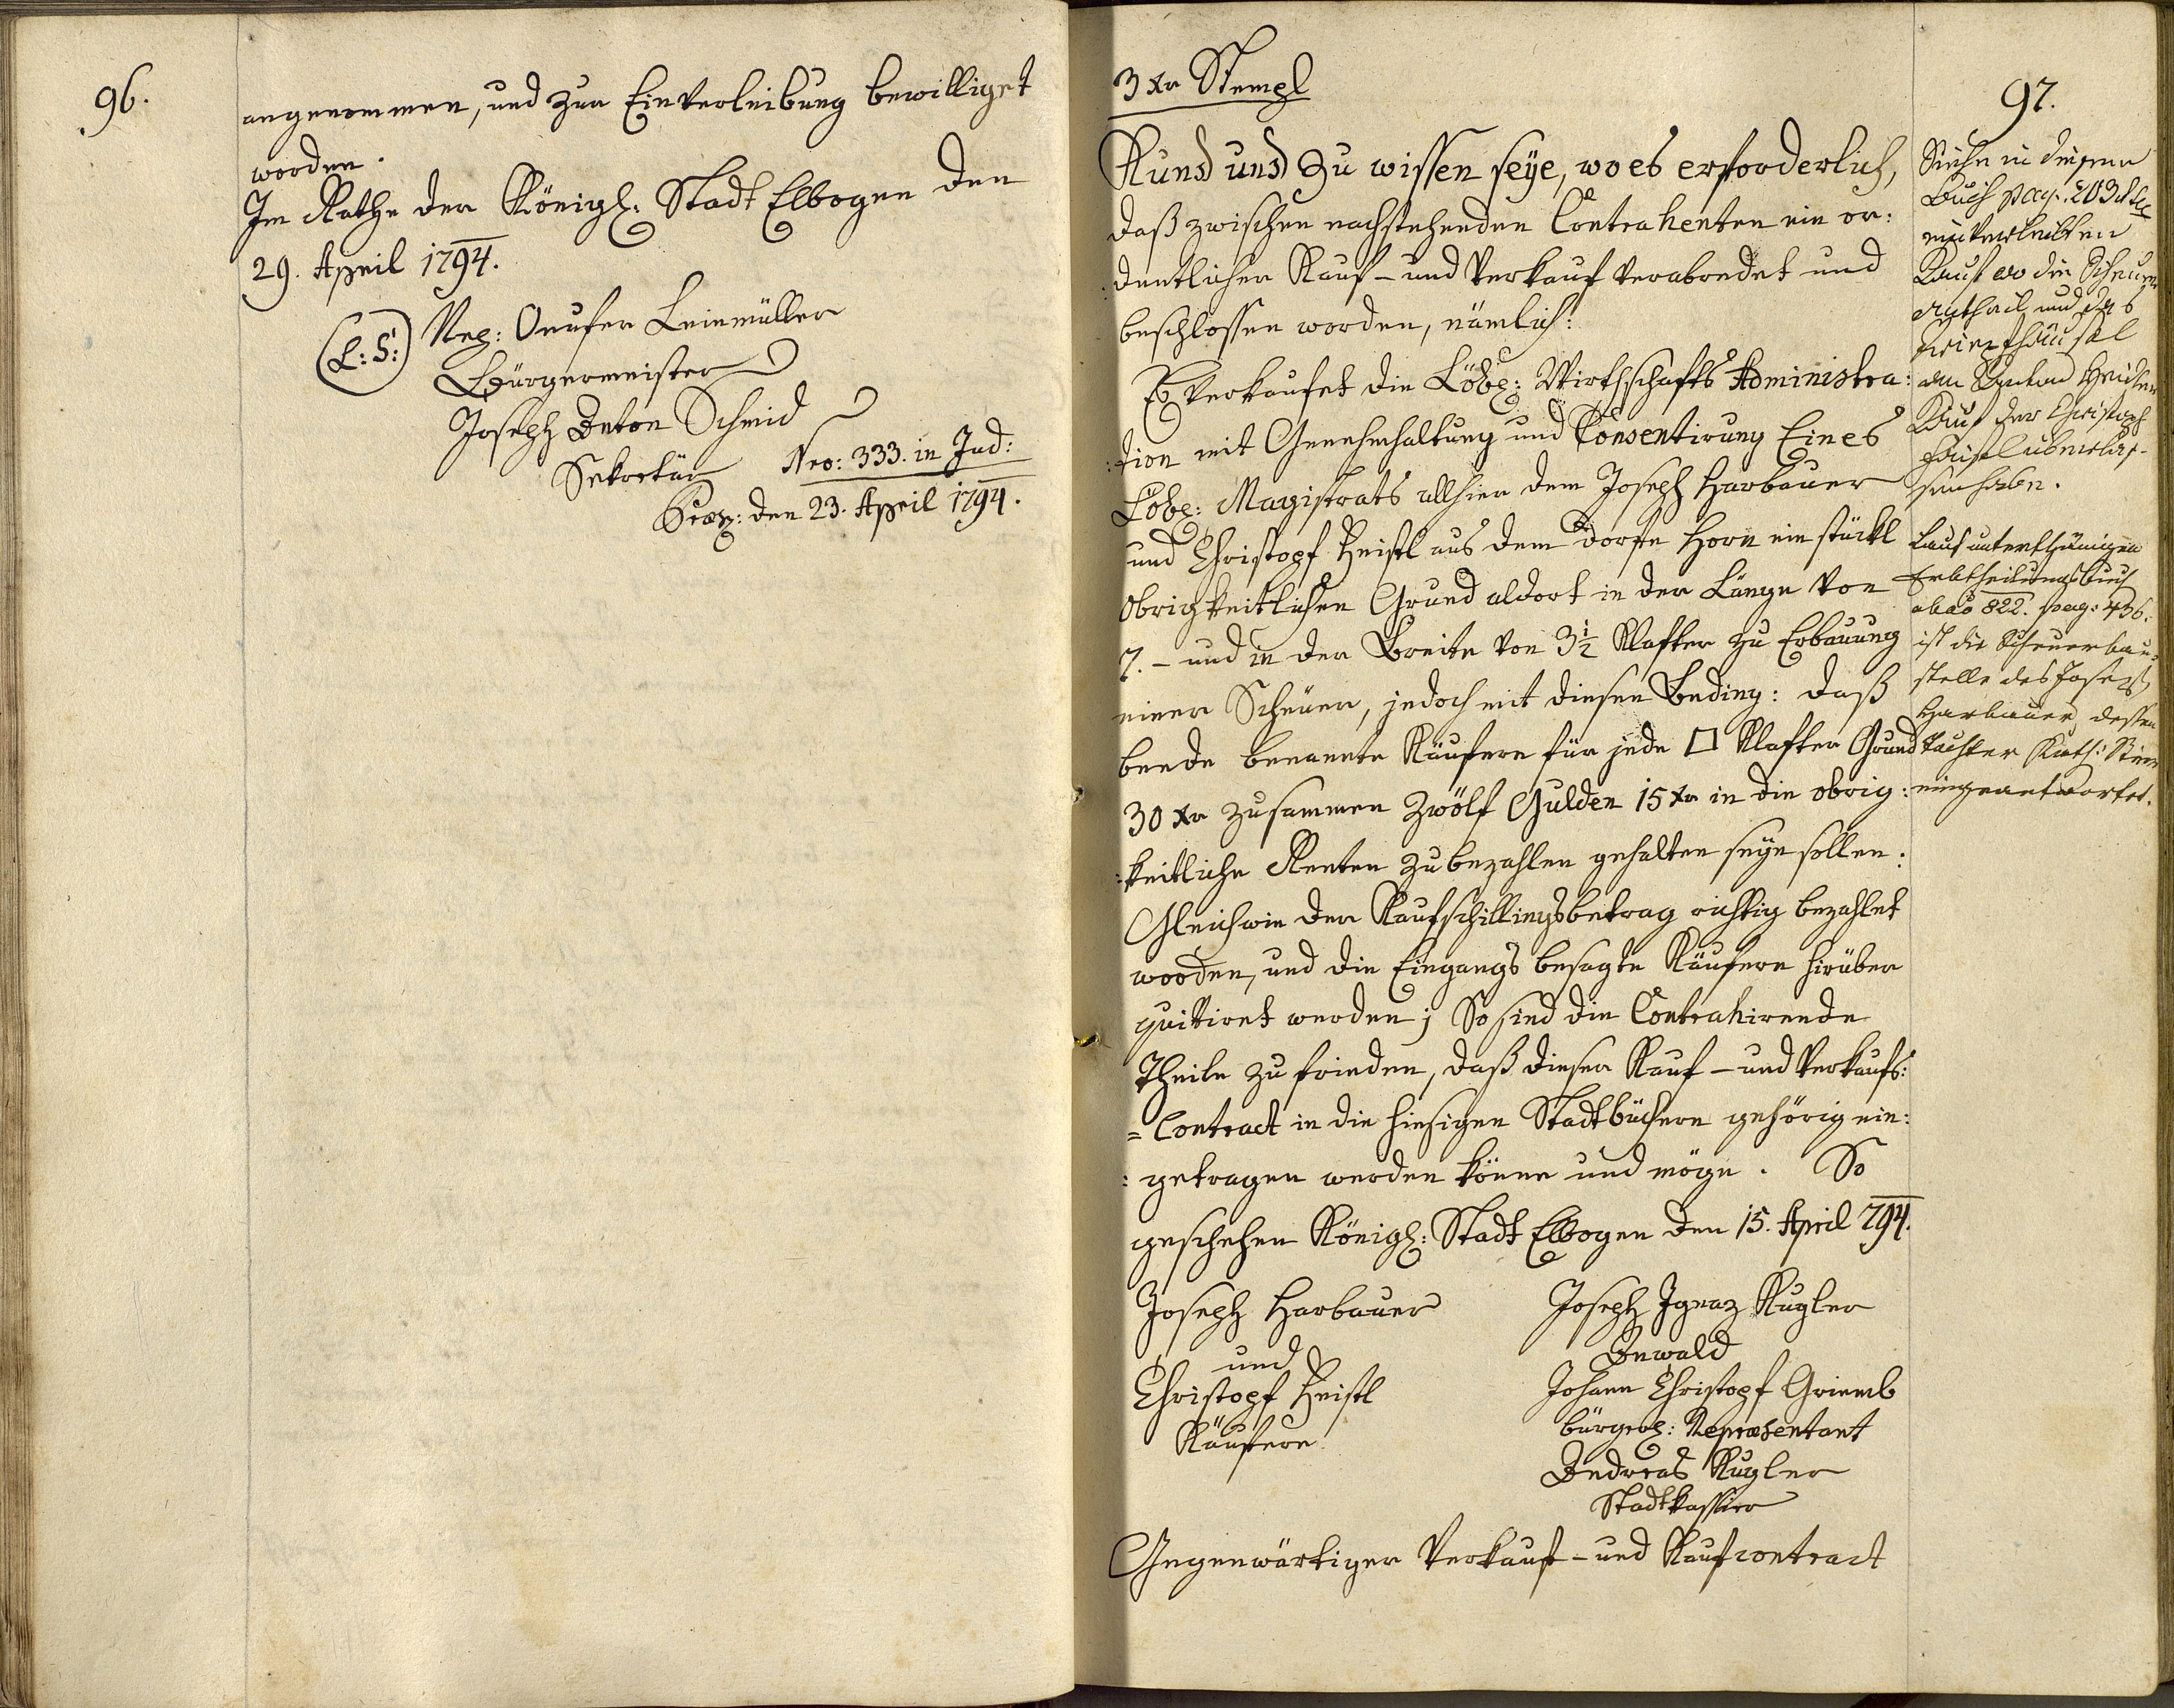 96.
angenommen, und zur Einverleibung bewilliget
worden.
Im Rathe der Königl: Stadt Elbogen den
29. April 1794.
(L: S:)
Onufer Leinmüller
Bürgermeister
Joseph Anton Schmid
Sekretär
Nro: 333. in Jud:
Præs: den 23. April 1794.
3 xr Stempl
97.
Kund und zu wissen seye, wo es erforderlich,
daß zwischen nachstehenden Contrahenten ein or:
:dentlicher Kauf- und Verkauf verabredet und
beschlossen worden, nämlich:
Es verkaufet die Löbl: Wirthschafts Administra:
:tion mit Genehmhaltung und Consentirung Eines
Löbl: Magistrats allhier dem Joseph Harbauer
und Christopf Heistl aus dem Dorfe Horn ein stückl
obrigkeitlichen Grund aldort in der Länge von
7.- und in der Breite von 3½ Klafter zu Erbauung
einer Scheuer, jedoch mit diesen Beding: daß
beede benannte Käufere für jede □ Klafter Grund
30 xr zusammen Zwölf Gulden 15 xr in die obrig:
:keitliche Renten zubezahlen gehalten seyn sollen:
Gleichwie der Kaufschillingsbetrag richtig bezahlet
worden, und die Eingangs besagte Käufere hirüber
quitiret werden; So sind die Contrahirende
Theile zufrieden, daß dieser Kauf- und Verkaufs:
=Contract in die hiesigen Stadtbüchern gehörig ein:
:getragen werden könne und möge. So
geschehen Königl: Stadt Elbogen den 15. April 794.
Joseph Harbauer
und
Christopf Heistl
Käufere
Joseph Ignaz Kugler
Anwald
Johann Christopf Grimmb
bürgerl: Repræsentant
Andreas Kugler
Stadtkassier
Gegenwärtiger Verkauf- und Kaufcontract
Siehe in diesem
Buch pag. 203
einverleibten
Kauf wo die Scheuer
Antheil und das
häusel
an Anton
Kauf der Christoph
Häusl überlas-
sen haben.
Laut unterthänigen
Erbtheilungsbuch
ab aō 822. pag: 436.
ist die Scheuerbau-
stelle des Joseph
Harbauer, dessen
Tochter Kath:
eingeantwortet.